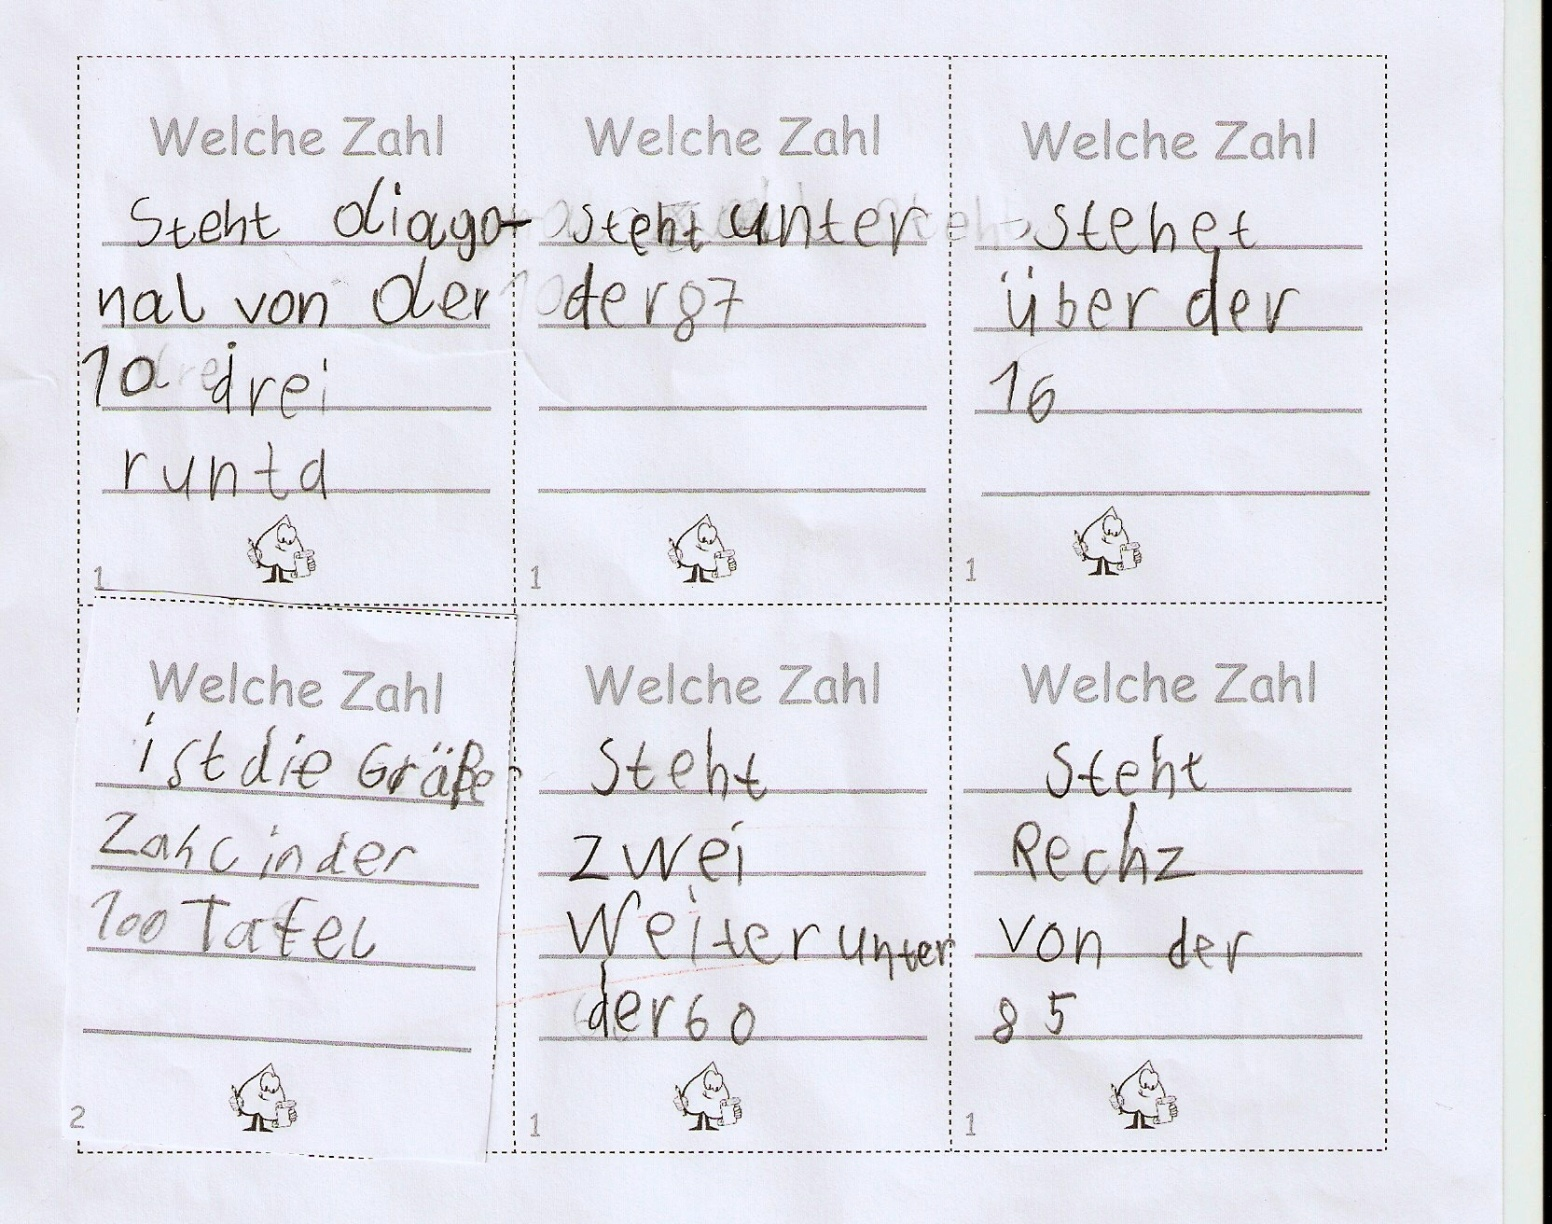 Welche Zahl
Steht diago-
nal von der
10 drei
runta
1
Welche Zahl
steht unter
der 87
1
Welche Zahl
stehet
über der
16
1
Welche Zahl
ist die Gräße
Zahl in der
100 Tafel
2
Welche Zahl
Steht
zwei
Weiter unter
der 60
1
Welche Zahl
Steht
Rechz
von der
85
1